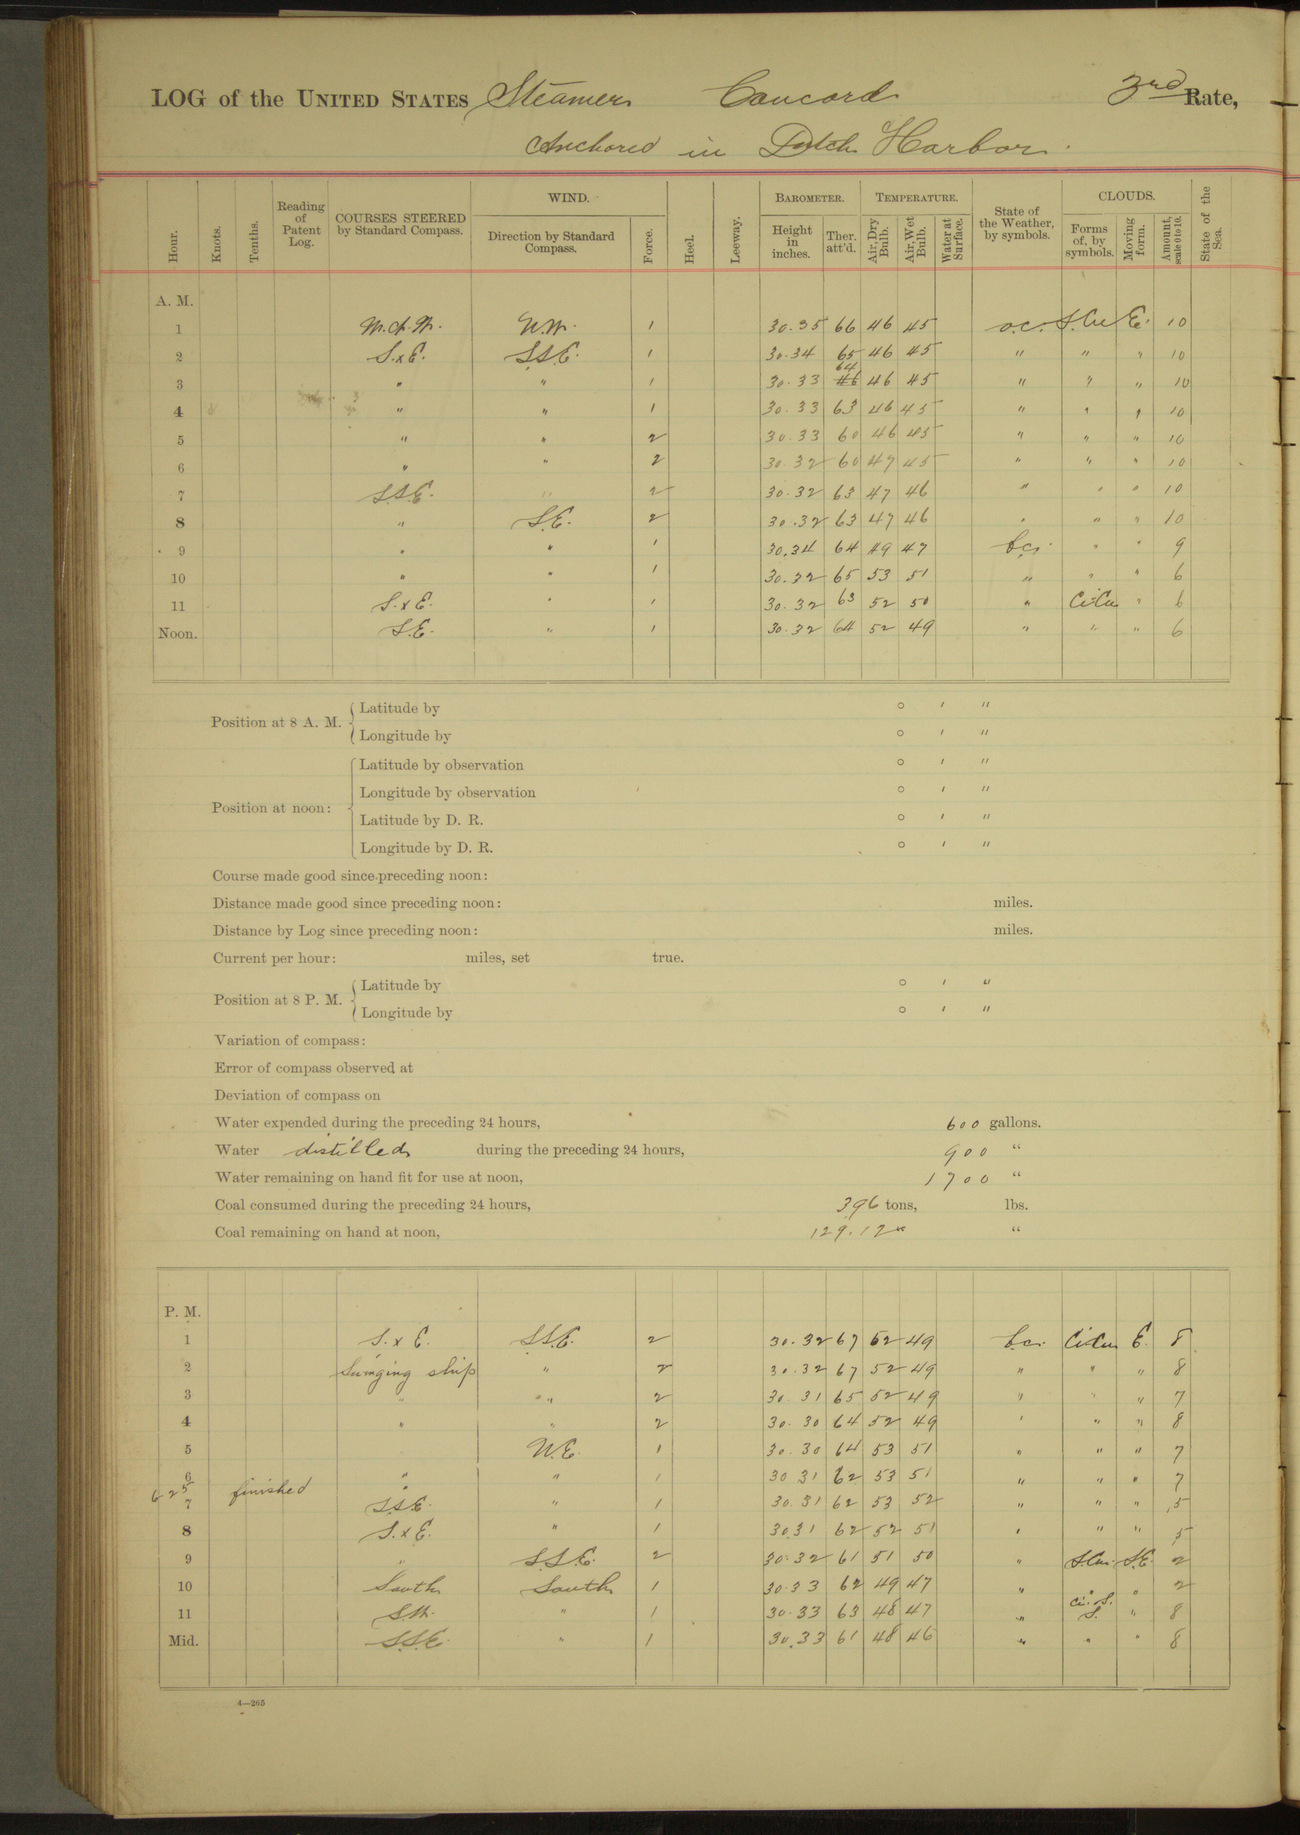 LOG of the UNITED STATES Steamer Concord 3rd Rate,
Anchored in Dutch Harbor.
Hour. Knots. Tenths. Reading of Patent Log. COURSES STEERED by Standard Compass. WIND. Direction by Standard Compass. Force. Heel. Leeway. BAROMETER. Height in inches. Ther. att'd. TEMPERATURE. Air, Dry Bulb. Air, Wet Bulb. Water at Surface. State of the Weather, by symbols. CLOUDS. Forms of, by symbols. Moving form. Amount, scale 0 to 10. State of the Sea.
A. M.
1 N.W. 1 30.35 66 46 45 o.c. S.Cu E. 10
2 S.xE. S.S.E. 1 30.34 65 46 45 " " " 10
3 " " 1 30.33 64 46 45 " " " 10
4 " " 1 30.33 63 46 45 " " " 10
5 " " 2 30.33 60 46 45 " " " 10
6 " " 2 30.32 60 47 45 " " " 10
7 S.S.E. " 2 30.32 63 47 46 " " " 10
8 " S.E. 2 30.32 63 47 46 " " " 10
9 " " 1 30.34 64 49 47 b.c. " " 9
10 " " 1 30.32 65 53 51 " " " 6
11 S.xE. " 1 30.32 63 52 50 " Ci-Cu " 6
Noon. S.E. " 1 30.32 64 52 49 " " " 6
Position at 8 A. M. Latitude by ° ' "
Longitude by ° ' "
Position at noon: Latitude by observation ° ' "
Longitude by observation ° ' "
Latitude by D. R. ° ' "
Longitude by D. R. ° ' "
Course made good since preceding noon:
Distance made good since preceding noon: miles.
Distance by Log since preceding noon: miles.
Current per hour: miles, set true.
Position at 8 P. M. Latitude by ° ' "
Longitude by ° ' "
Variation of compass:
Error of compass observed at
Deviation of compass on
Water expended during the preceding 24 hours, 600 gallons.
Water distilled during the preceding 24 hours, 900 "
Water remaining on hand fit for use at noon, 1700 "
Coal consumed during the preceding 24 hours, 396 tons, lbs.
Coal remaining on hand at noon, 129.12 " "
P. M.
1 S.xE. S.S.E. 2 30.32 67 52 49 b.c. Ci-Cu E. 8
2 Swinging ship " 2 30.32 67 52 49 " " " 8
3 " " 2 30.31 65 52 49 " " " 7
4 " " 2 30.30 64 52 49 " " " 8
5 N.E. 1 30.30 64 53 51 " " " 7
6 " " 1 30 31 62 53 51 " " " 7
6 25 finished "
7 S.S.E. " 1 30.31 62 53 52 " " " 5
8 S.xE. " 1 30.31 62 52 51 " " " 5
9 " S.S.E. 2 30.32 61 51 50 " S.Cu. S.E. 2
10 South South 1 30.33 62 49 47 " " " 2
11 S.W. " 1 30.33 63 48 47 " Ci.-S. S. " 8
Mid. S.S.E. " 1 30.33 61 48 46 " " " 8
4—265